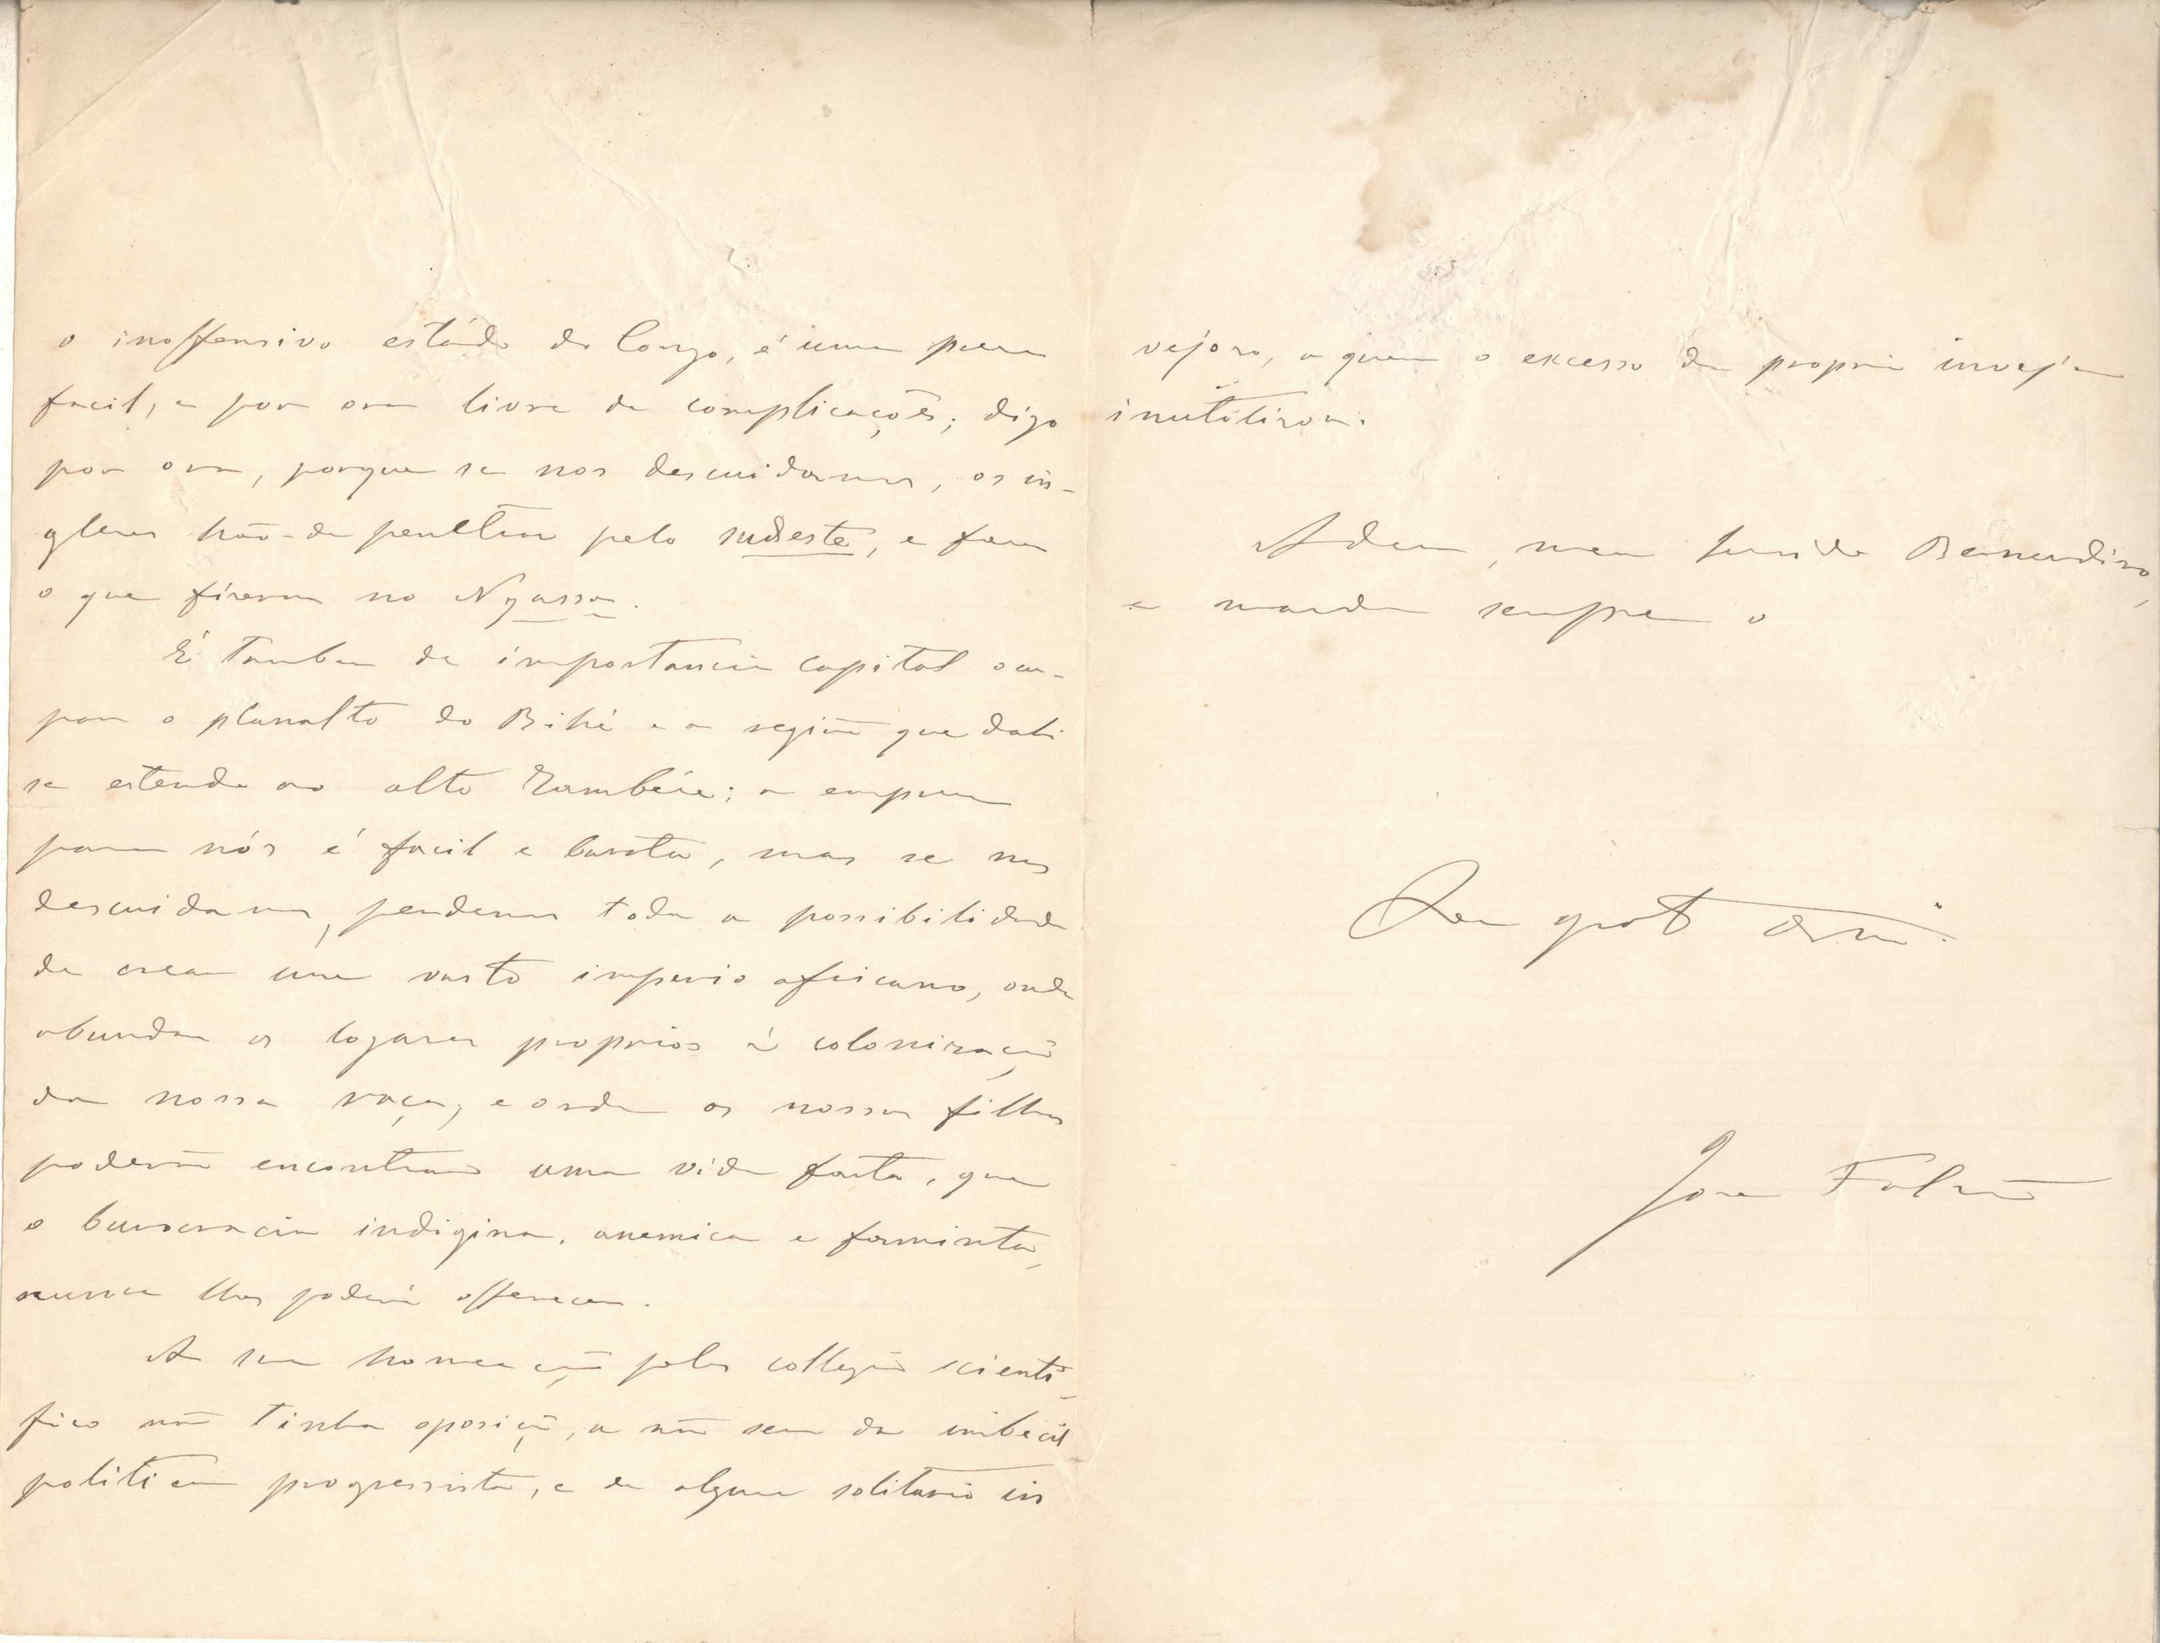 o inoffensivo estádo do Congo, é uma
facil, e por ora livre de complicações; digo
por ora, porque se nos descuidamos, os in-
glezes hão-de penetrar pelo sudeste, e fazer
o que fizeram no Nyassa.
É tambem de importancia capital occu-
par o planalto do Bihé e a região que dali
se estende ao alto Zambéze; a empreza
para nós é facil e barata, mas se nos
descuidamos, perdemos toda a possibilidade
de crear um vasto imperio africano, onde
abundam os logares proprios á colonização
da nossa raça, e onde os nossos filhos
poderão encontrar uma vida farta, que
a burocracia indigina, anemica e faminta,
nunca lhes poderá offerecer.
A sua nomeação pelo collegio scienti-
fico não tinha oposição, a não ser da imbecil
politica progressista, e de algum solitario in
vejoso, a quem o excesso da propria inveja
inutilizou.
Adeus, meu querido Bernardino,
e mande sempre o
José Falcão